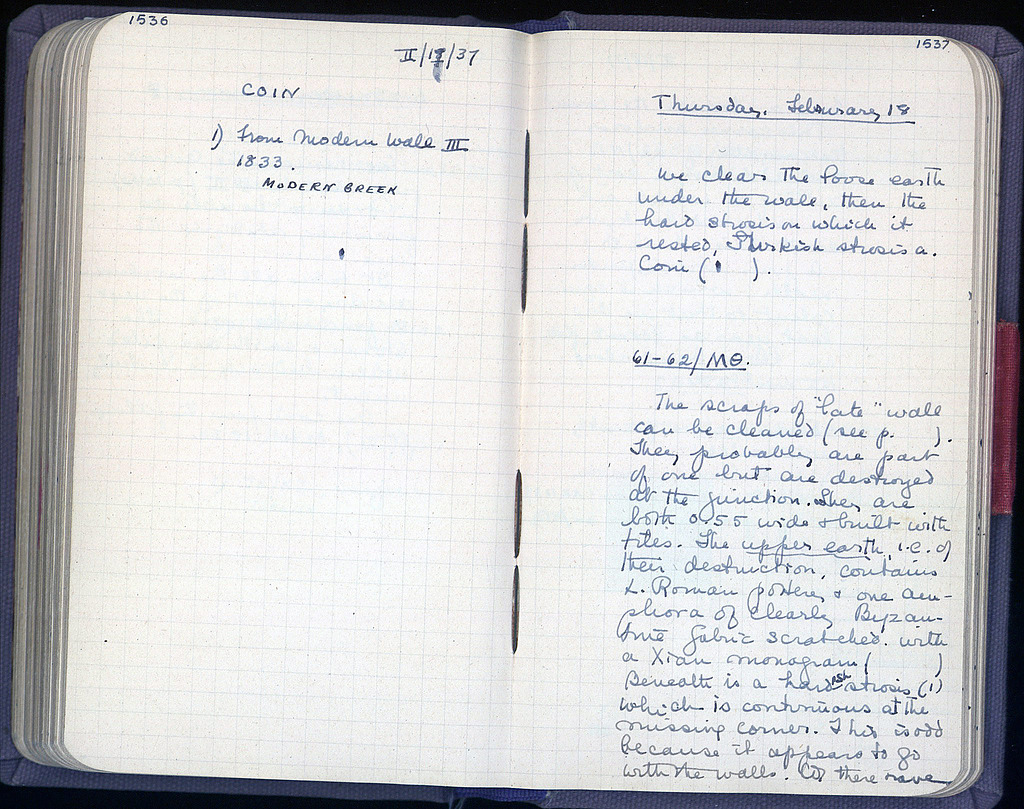 1536
II/18/37
COIN
1) From Modern Wall III
1833.
MODERN GREEK
1537
Thursday, February 18
We clear the loose earth
under the wall, then the
hard strosis on which it
rested, Turkish strosis a.
Coin (1    ).
61-62/ΜΘ.
The scraps of "late" wall
can be cleaned (see p.    ).
They probably are part
of one but are destroyed
at the junction. They are
both 0.55 wide & built with
tiles. The upper earth, i.e. of
their destruction, contains
L. Roman pottery & one am-
phora of clearly Byzan-
tine fabric scratched with
a Xian monogram (    )
Beneath is a hard ash strosis (1)
which is continuous at the
missing corner. This is odd
because it appears to go
with the walls. there